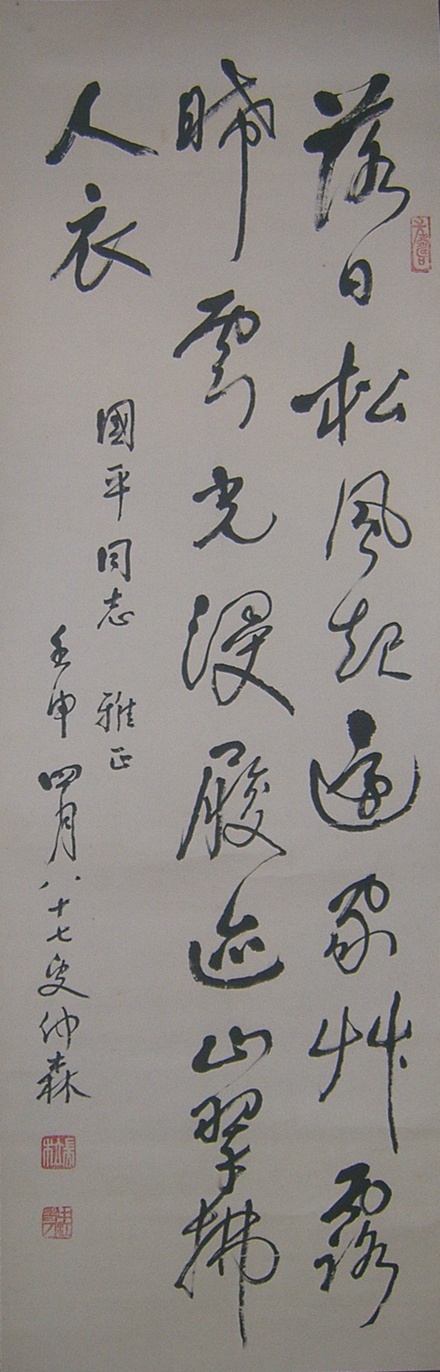 落日松風起還家艸露
晞雲光浸履迹山翠拂
人衣
國平同志 雅正
壬申四月八十七叟仲森